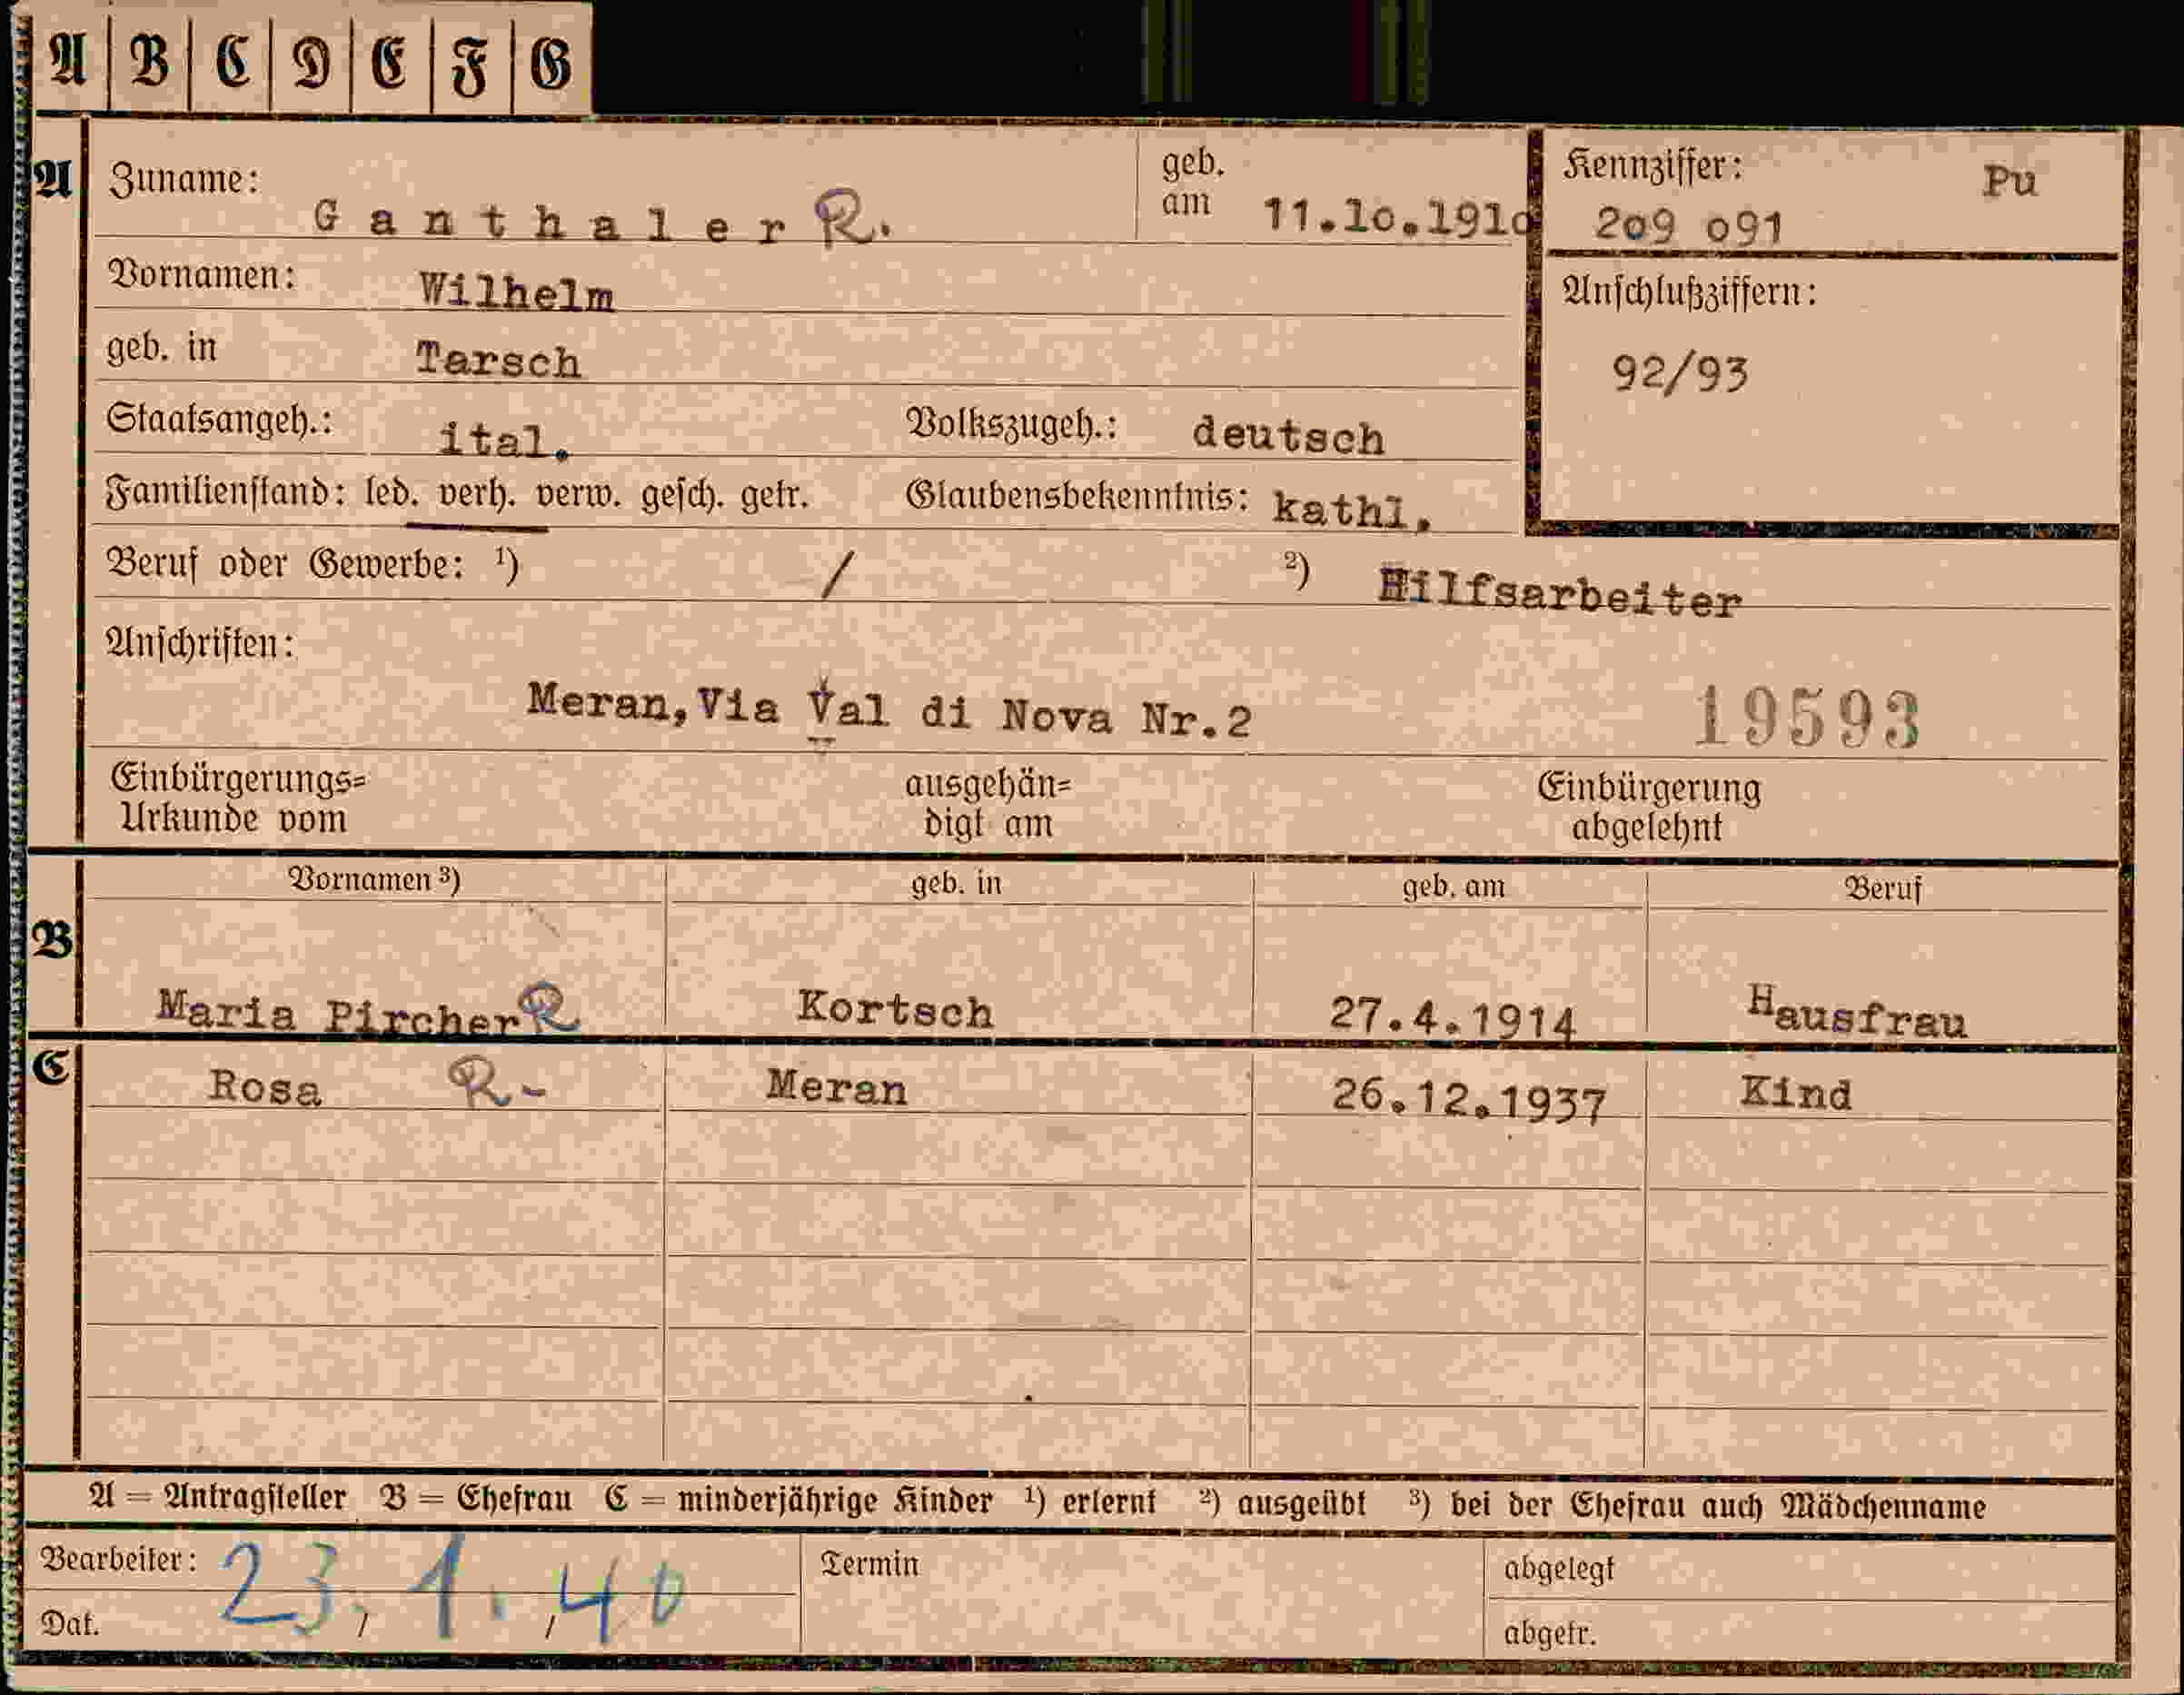 A B C D E F G
A Zuname: Ganthaler R. geb. am 11.10.1910
Kennziffer: Pu
209 091
Vornamen: Wilhelm
Anschlußziffern:
92/93
geb. in Tarsch
Staatsangeh.: ital. Volkszugeh.: deutsch
Familienstand: led. verh. verw. gesch. getr. Glaubensbekenntnis: kathl.
Beruf oder Gewerbe: ¹) / ²) Hilfsarbeiter
Anschriften:
Meran,Via Val di Nova Nr.2 19593
Einbürgerungs= ausgehän= Einbürgerung
Urkunde vom digt am abgelehnt
Vornamen ³) geb. in geb. am Beruf
B
Maria Pircher R Kortsch 27.4.1914 Hausfrau
C Rosa R- Meran 26.12.1937 Kind
A = Antragsteller B = Ehefrau C = minderjährige Kinder ¹) erlernt ²) ausgeübt ³) bei der Ehefrau auch Mädchenname
Bearbeiter: 23.1.40 Termin abgelegt
Dat. abgetr.